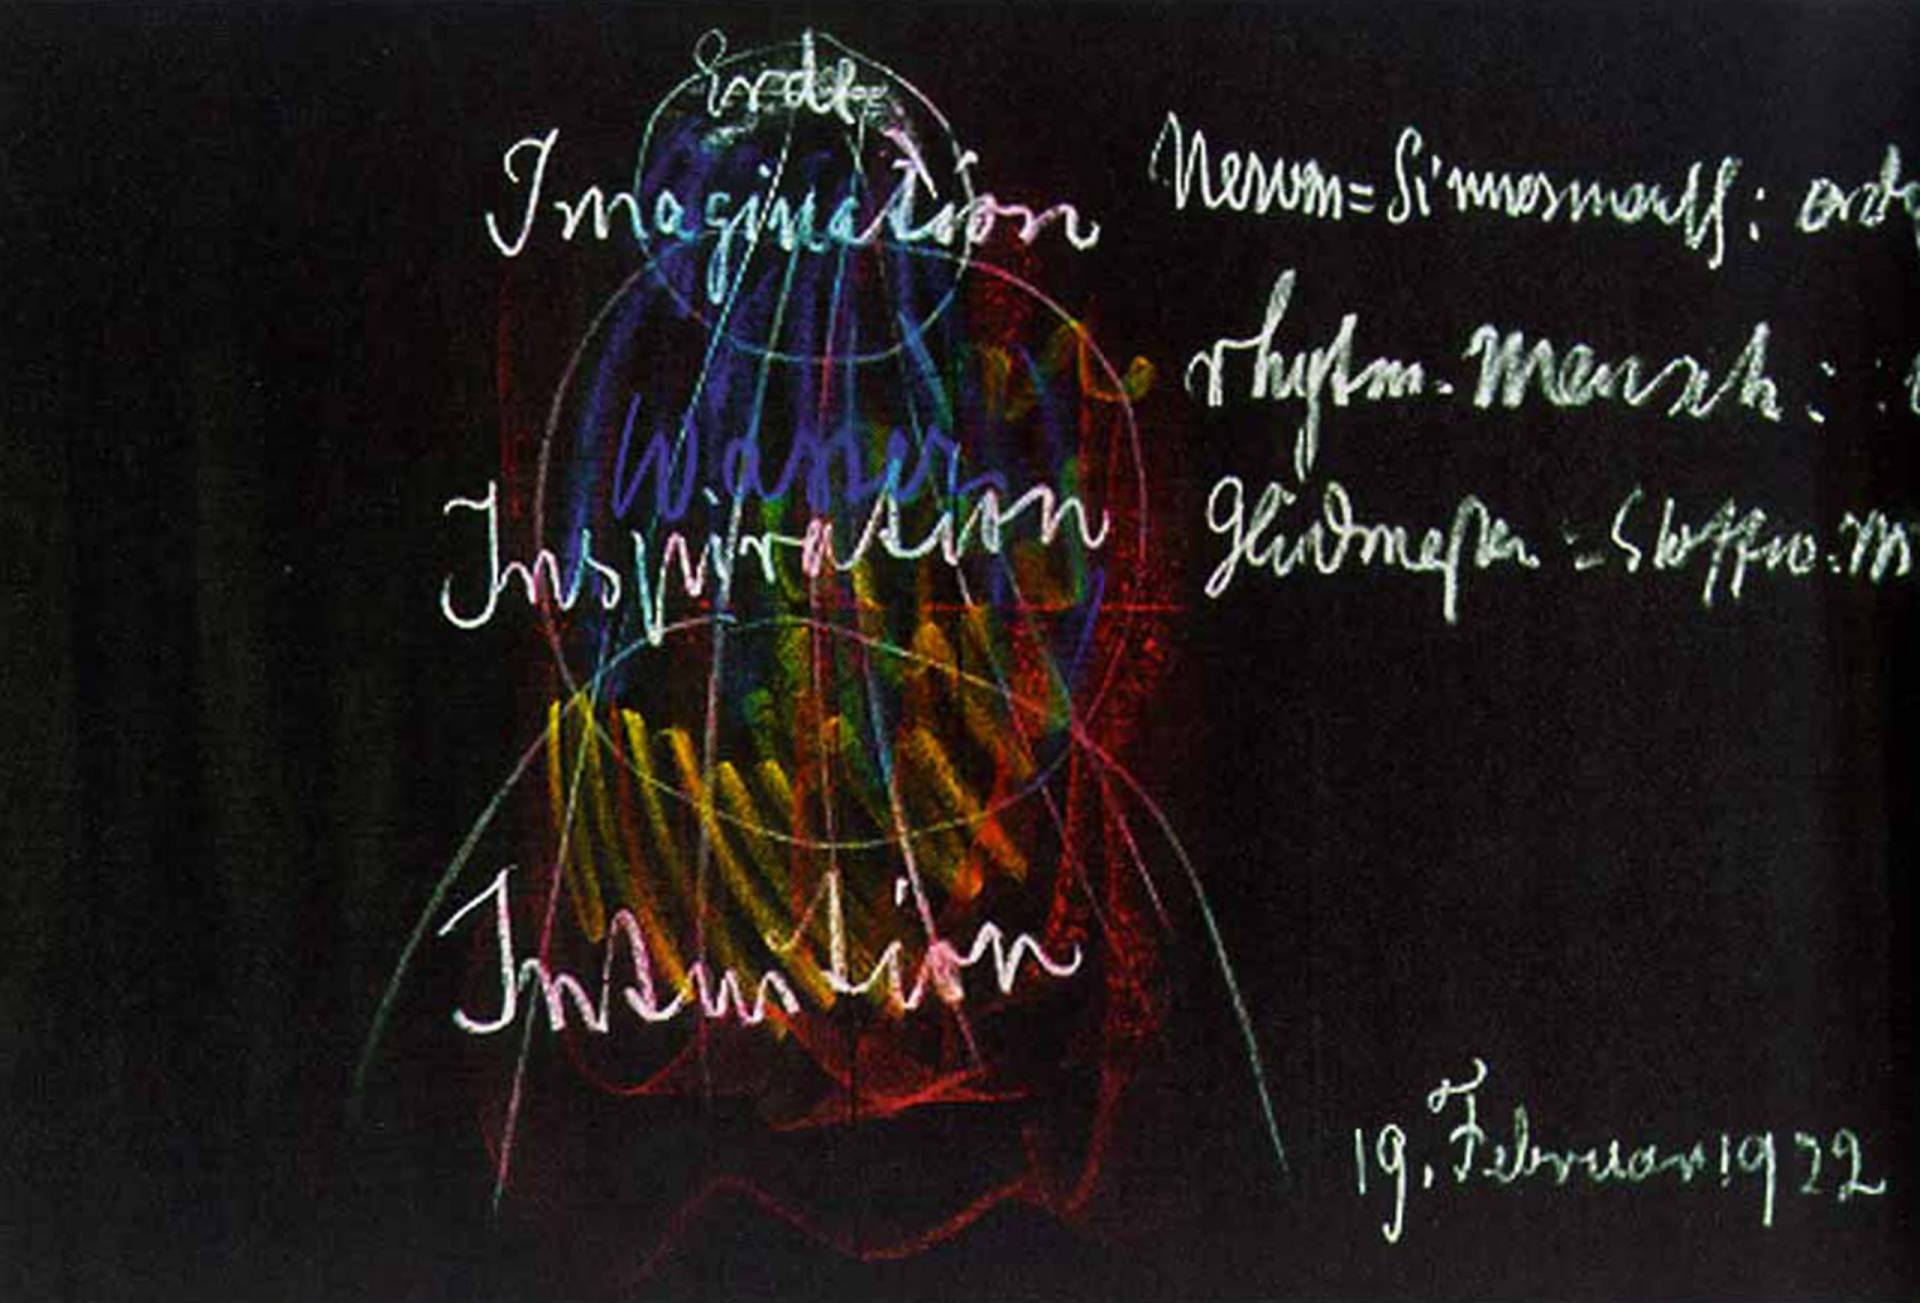 Erde
Imagination
Wasser
Inspiration
Intuition
Nerven=Sinnesmensch: erd
rhytm. Mensch:
Gliedmaßen=Stoffw. M
19. Februar 1922